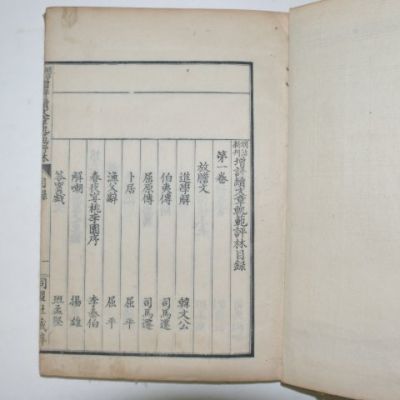 明治新刊增評續文章軌範評林目錄
第一卷
放膽文
進學解 韓文公
伯夷傳 司馬遷
屈原傳 司馬遷
卜居 屈平
漁父辭 屈平
春夜宴桃李園序 李太白
解嘲 揚雄
答賓戲 班孟堅
目錄
一